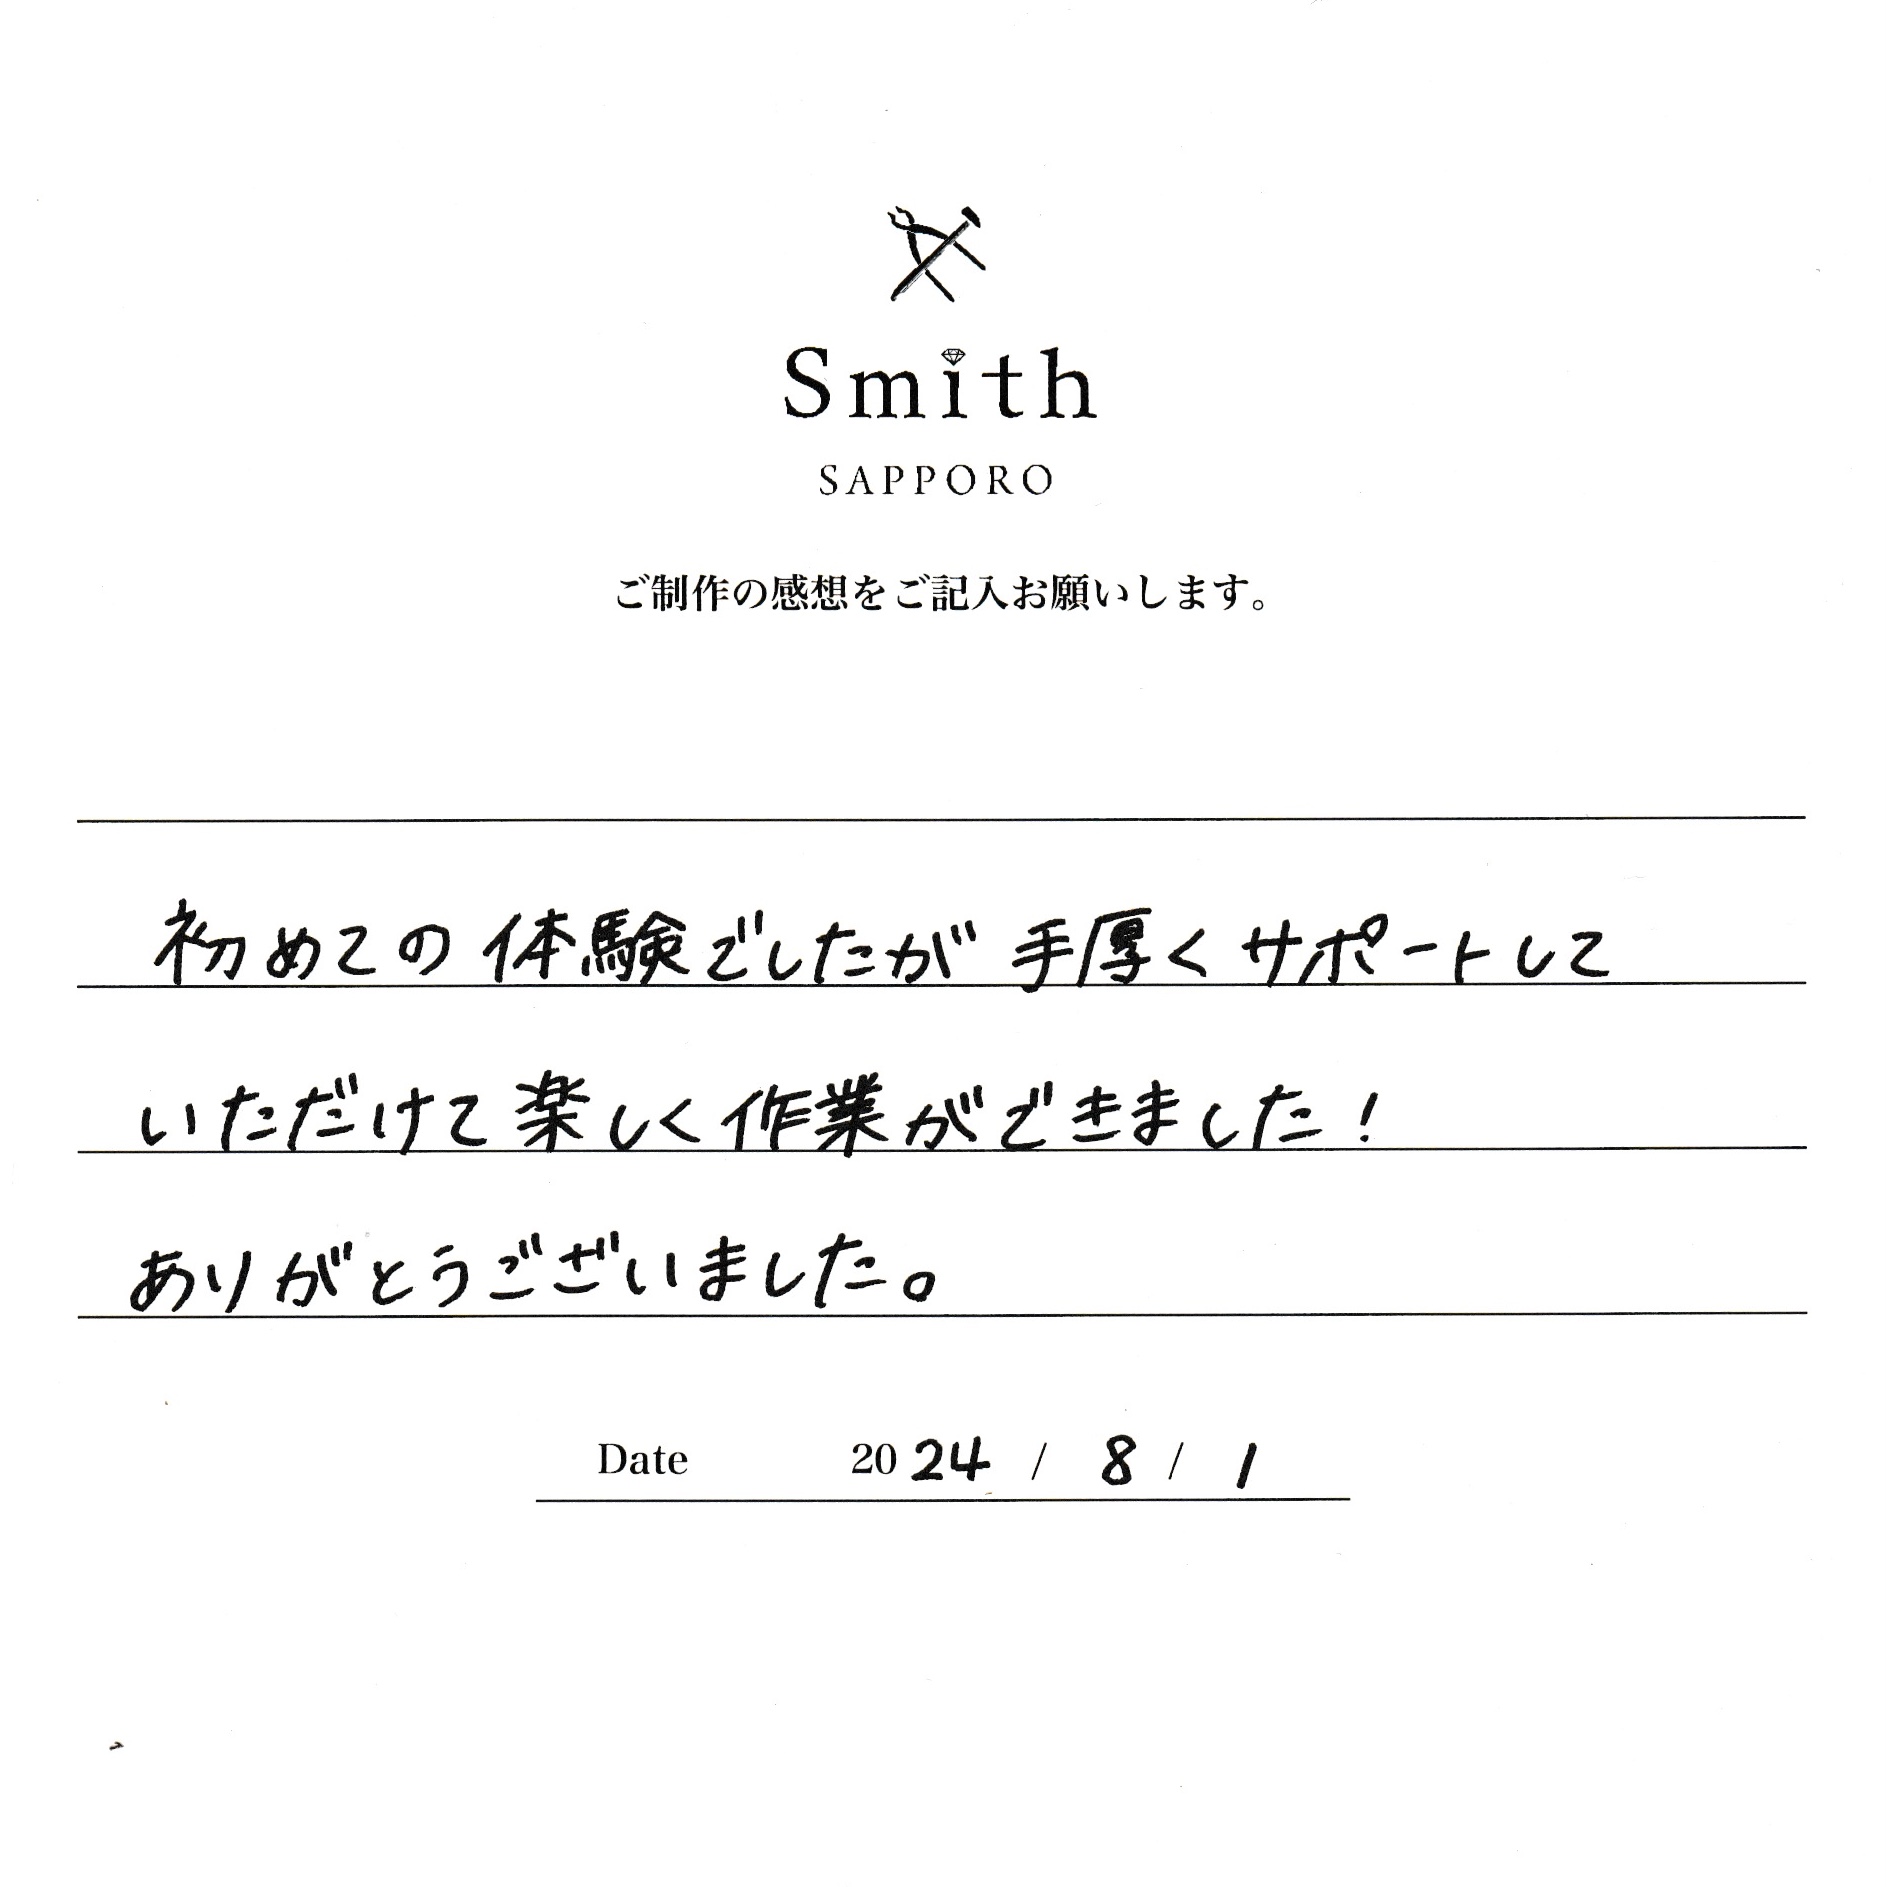 Smith
SAPPORO
ご制作の感想をご記入お願いします。
初めての体験でしたが手厚くサポートして
いただけて楽しく作業ができました！
ありがとうございました。
Date 2024 / 8 / 1